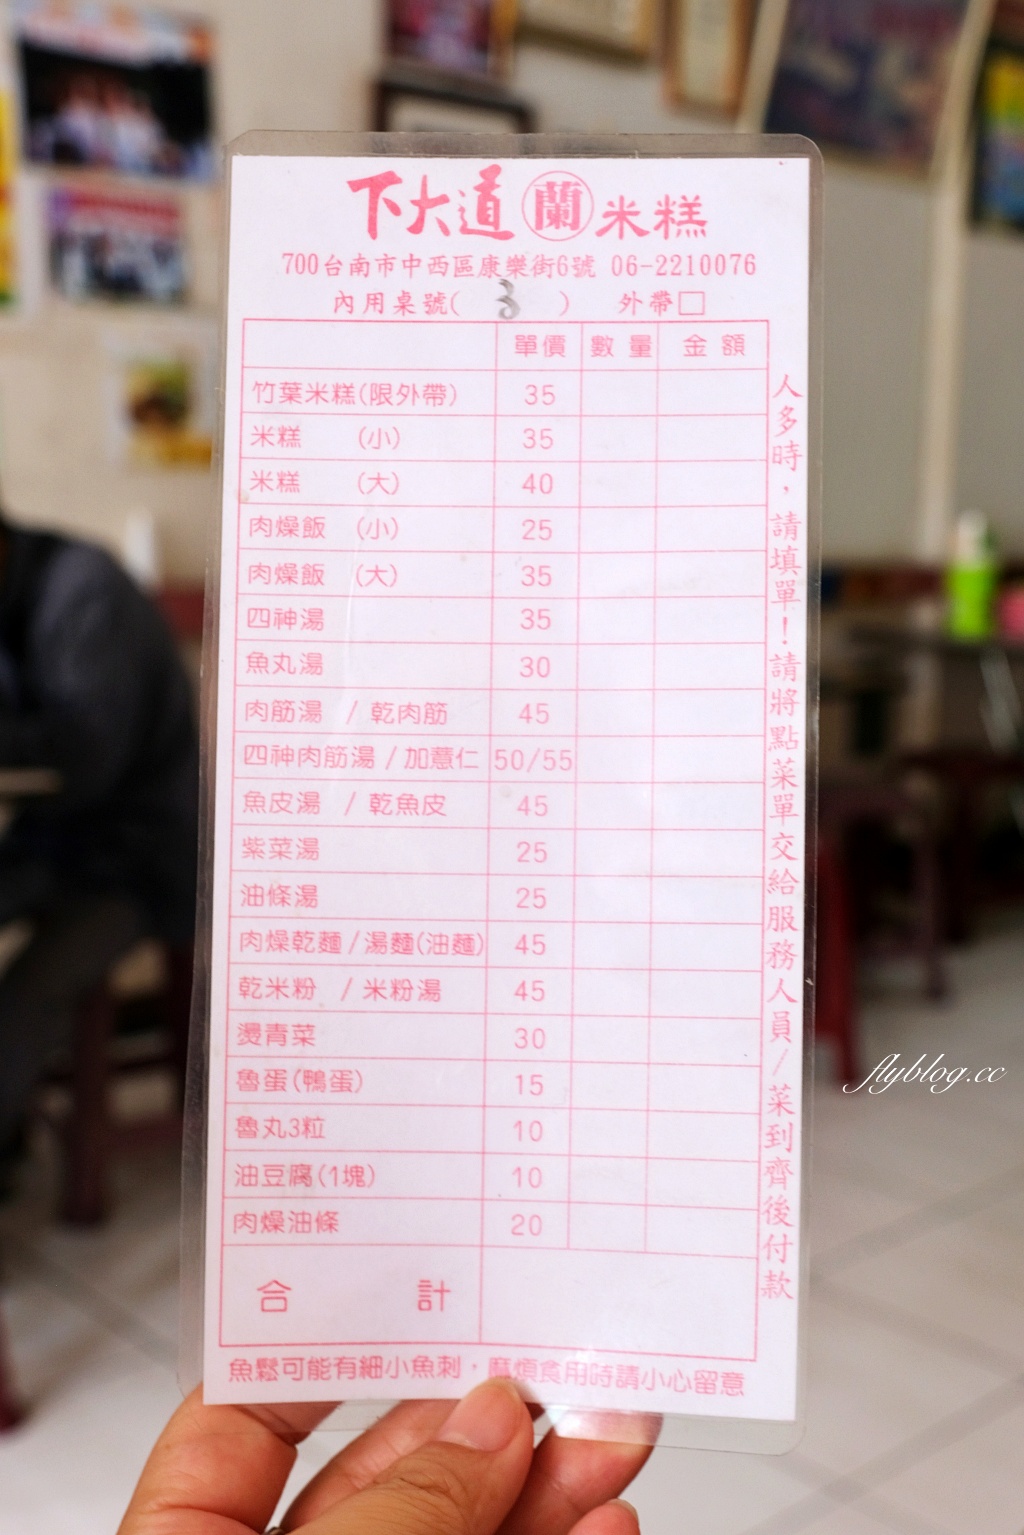 下大道 蘭 米糕
700台南市中西區康樂街6號 06-2210076
內用桌號( 3 ) 外帶□
單價 數量 金額
竹葉米糕(限外帶) 35
米糕 (小) 35
米糕 (大) 40
肉燥飯 (小) 25
肉燥飯 (大) 35
四神湯 35
魚丸湯 30
肉筋湯 / 乾肉筋 45
四神肉筋湯 / 加薏仁 50/55
魚皮湯 / 乾魚皮 45
紫菜湯 25
油條湯 25
肉燥乾麵/湯麵(油麵) 45
乾米粉 / 米粉湯 45
燙青菜 30
魯蛋(鴨蛋) 15
魯丸3粒 10
油豆腐(1塊) 10
肉燥油條 20
合計
人多時，請填單！請將點菜單交給服務人員/菜到齊後付款
魚鬆可能有細小魚刺，麻煩食用時請小心留意
flyblog.cc